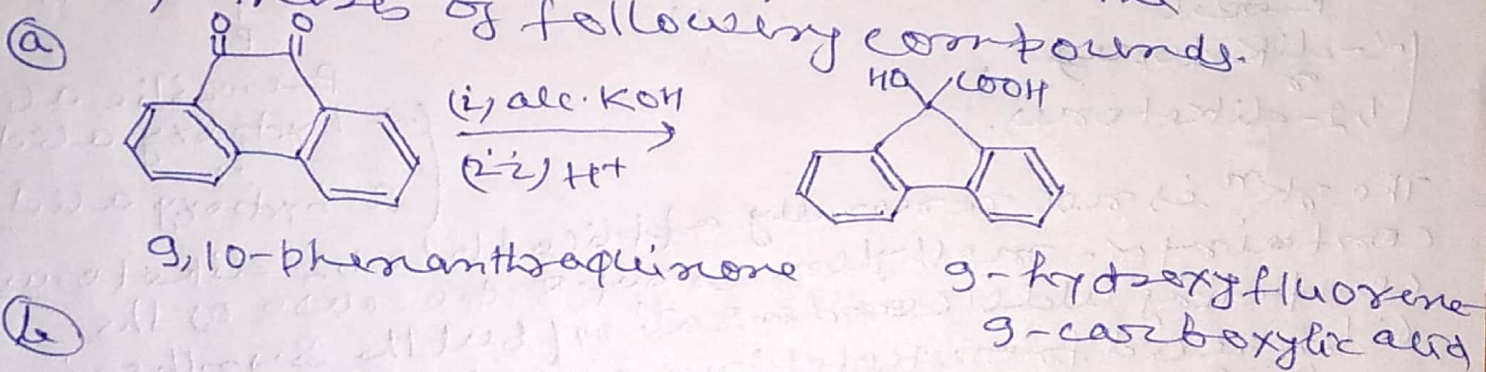 of following compounds.
(a)
O O
HO COOH
(i) alc. KOH
(ii) H+
9,10-phenanthraquinone
9-hydroxyfluorene-
9-carboxylic acid
(b)